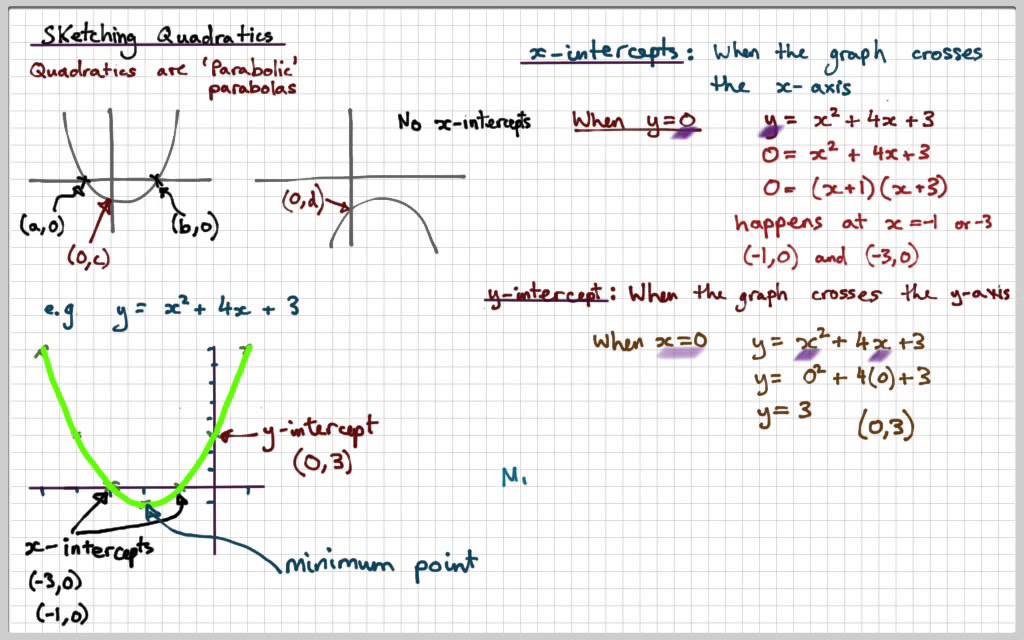 Sketching Quadratics
Quadratics are 'Parabolic'
parabolas
No x-intercepts
(a,0)
(b,0)
(0,c)
(0,d)
e.g y = x² + 4x + 3
y-intercept
(0,3)
x-intercepts
(-3,0)
(-1,0)
minimum point
x-intercepts: When the graph crosses
the x-axis
When y=0 y = x² + 4x + 3
0 = x² + 4x + 3
0 = (x+1)(x+3)
happens at x = -1 or -3
(-1,0) and (-3,0)
y-intercept: When the graph crosses the y-axis
When x=0 y = x² + 4x + 3
y = 0² + 4(0) + 3
y = 3 (0,3)
Mı